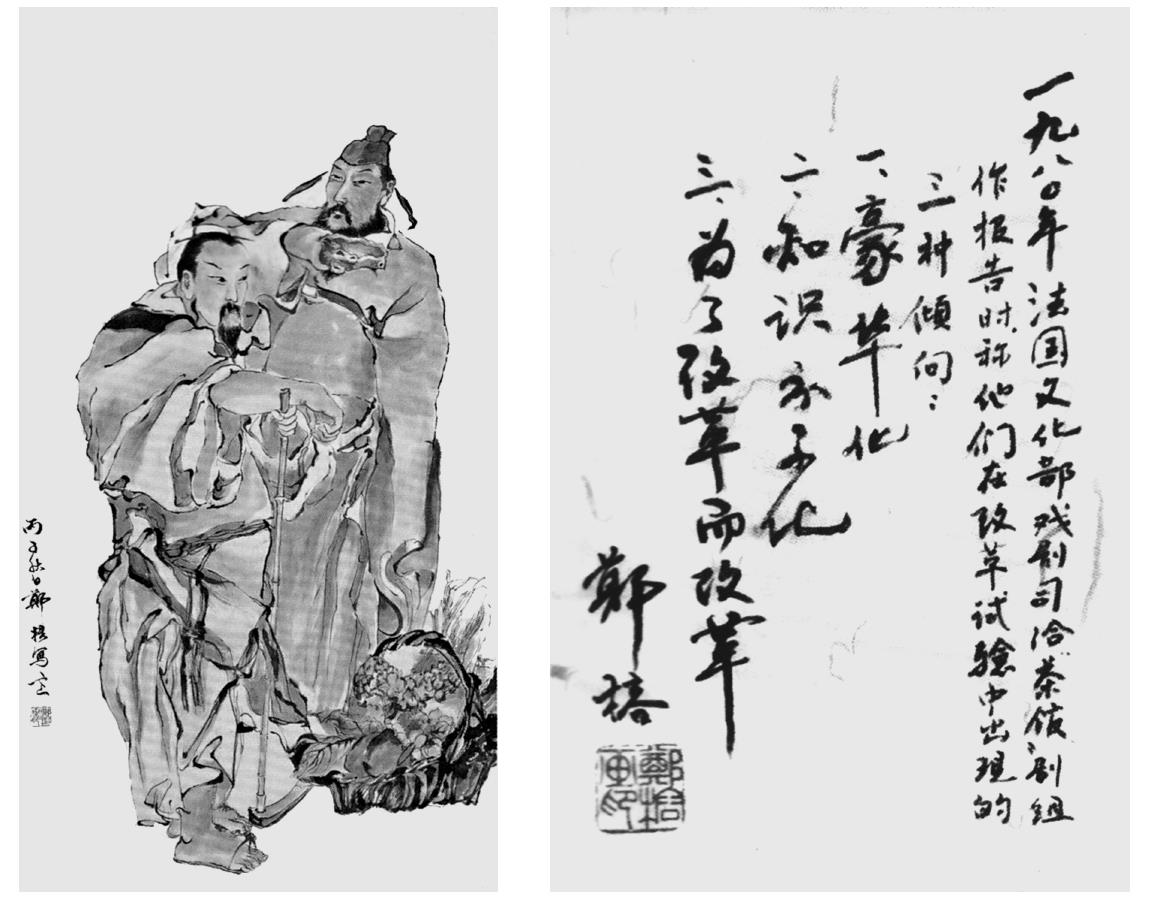 丙子秋日鄭榕寫
一九八〇年法国文化部戏剧司给茶馆剧组
作报告时称他们在改革试验中出现的
三种倾向：
一、豪华化
二、知识分子化
三、为了改革而改革
鄭榕
鄭榕画印